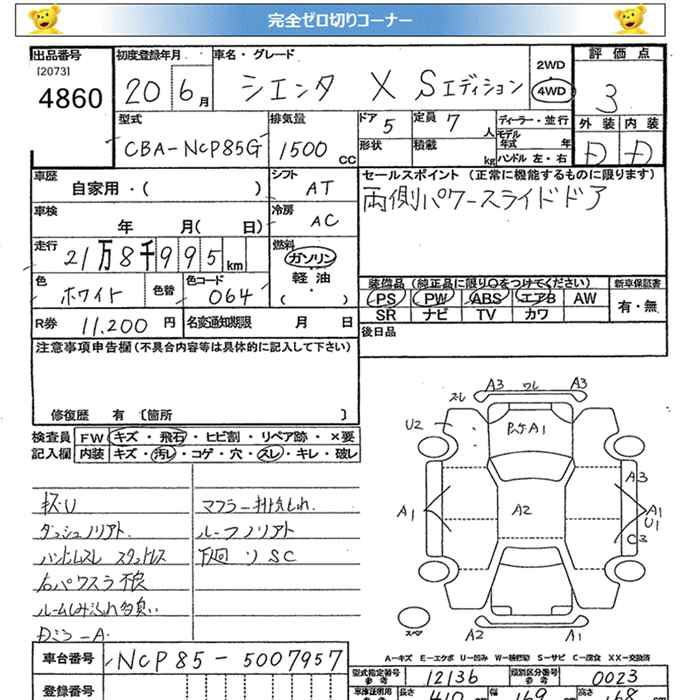 完全ゼロ切りコーナー
出品番号 初度登録年月 車名・グレード 評価点
[2073] 4860 20 6月 シエンタ X Sエディション 2WD 4WD 3
型式 排気量 ドア 定員 ディーラー・並行 外装 内装
CBA-NCP85G 1500 CC 5 7 人 モデル年式 年 D D
形状 積載 kg ハンドル 左・右
車歴 シフト セールスポイント (正常に機能するものに限ります)
自家用・( ) AT 両側パワースライドドア
車検 冷房
年 月( 日) AC
走行 燃料
21万8千995km ガソリン
色 色替 色コード 軽油 装備品 (純正品に限り○をつけてください) 新車保証書
ホワイト 064 ( ・ ) PS PW ABS エアB AW 有・無
SR ナビ TV カワ
R券 11,200 円 名変通知期限 月 日 後日品
注意事項申告欄(不具合内容等は具体的に記入して下さい)
修復歴 有 [箇所 ]
検査員 FW キズ・飛石・ヒビ割・リペア跡・×要
記入欄 内装 キズ・汚レ・コゲ・穴・スレ・キレ・破レ
A3 ワレ A3
スレ
U2 A1
A3
A1 A2 A1
U1
C3
スペア A2 A1
キズU マフラー排気もれ
ダッシュノリアト ルーフノリアト
ハンドルスレ スタットレス 下回りSC
右パワスラ不良
ルームしみ汚れ多臭い
DミラーA
A-キズ E-エクボ U-凹ミ W-補修跡 S-サビ C-腐食 XX-交換済
車台番号 NCP85-5007957 型式指定番号参考 12136 類別区分番号参考 0023
登録番号 車庫証明用参考 長さ 410 cm 幅 169 cm 高さ 168 cm